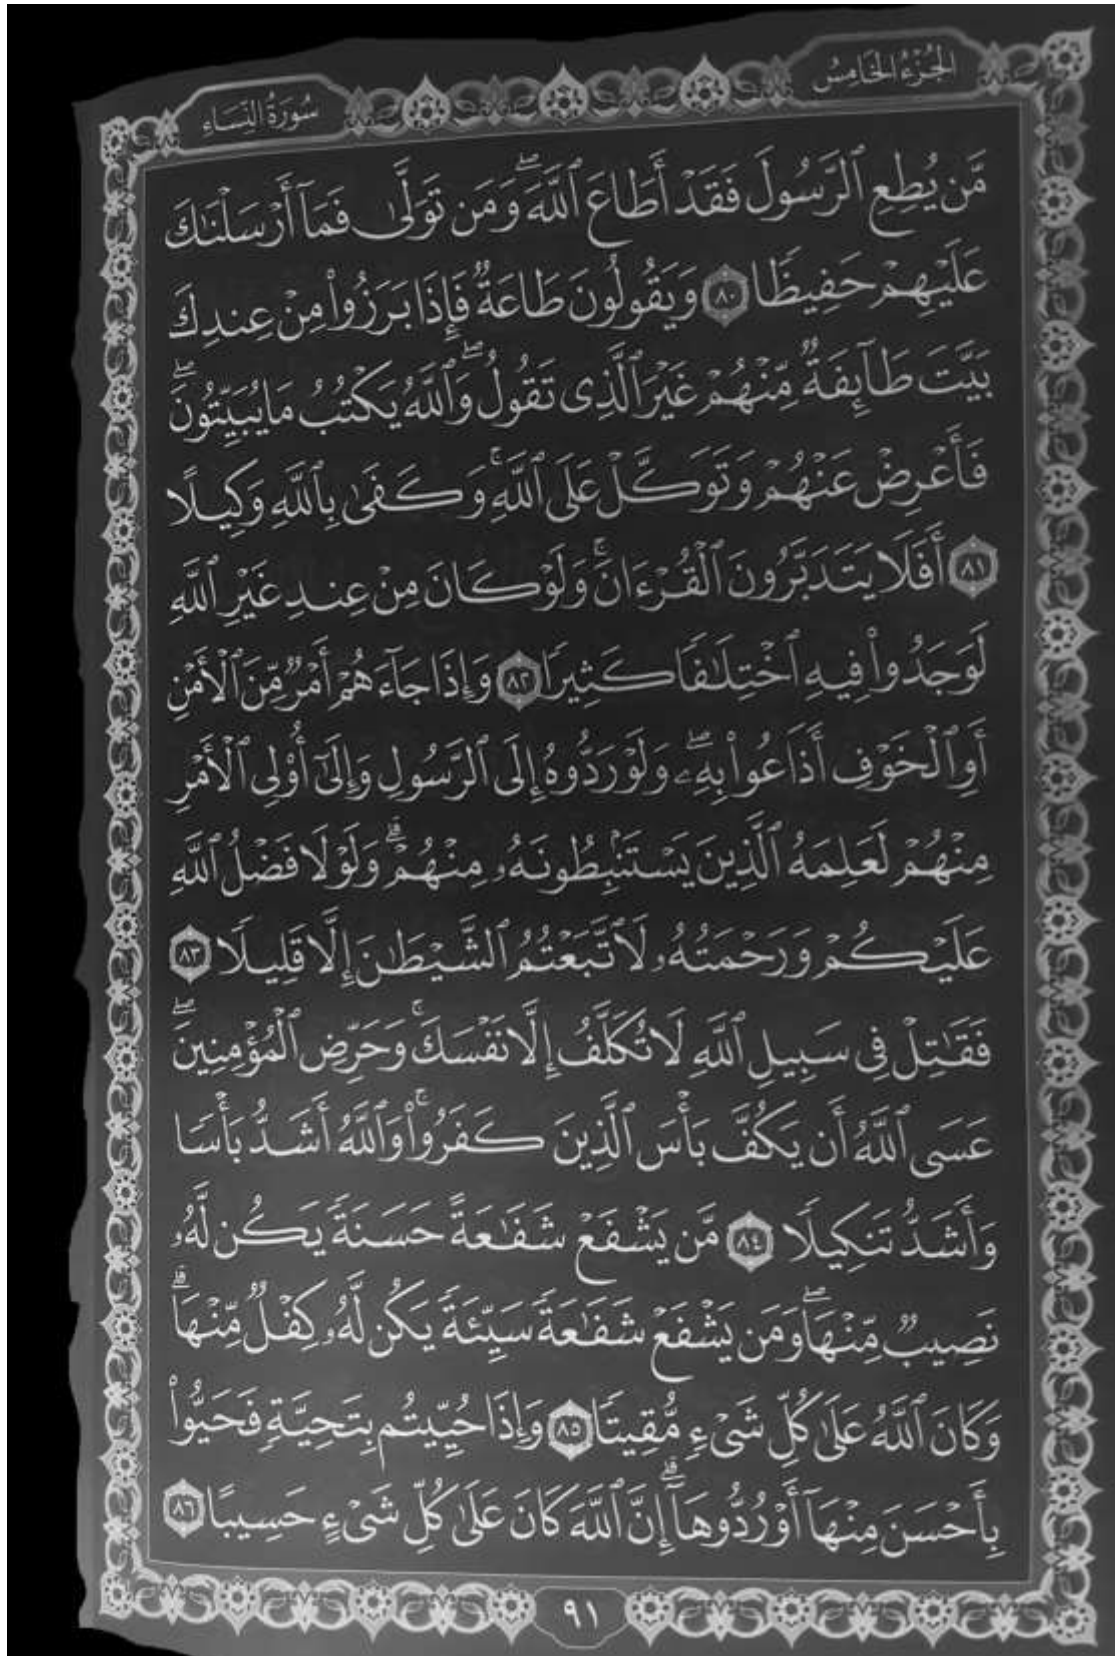 الجُزْءُ الخَامِسُ
سُورَةُ النِّسَاء
مَّن يُطِعِ ٱلرَّسُولَ فَقَدْ أَطَاعَ ٱللَّهَۖ وَمَن تَوَلَّىٰ فَمَآ أَرْسَلْنَٰكَ
عَلَيْهِمْ حَفِيظًا ٨٠ وَيَقُولُونَ طَاعَةٌ فَإِذَا بَرَزُوا۟ مِنْ عِندِكَ
بَيَّتَ طَآئِفَةٌ مِّنْهُمْ غَيْرَ ٱلَّذِى تَقُولُۖ وَٱللَّهُ يَكْتُبُ مَا يُبَيِّتُونَۖ
فَأَعْرِضْ عَنْهُمْ وَتَوَكَّلْ عَلَى ٱللَّهِۚ وَكَفَىٰ بِٱللَّهِ وَكِيلًا
٨١ أَفَلَا يَتَدَبَّرُونَ ٱلْقُرْءَانَۚ وَلَوْ كَانَ مِنْ عِندِ غَيْرِ ٱللَّهِ
لَوَجَدُوا۟ فِيهِ ٱخْتِلَٰفًا كَثِيرًا ٨٢ وَإِذَا جَآءَهُمْ أَمْرٌ مِّنَ ٱلْأَمْنِ
أَوِ ٱلْخَوْفِ أَذَاعُوا۟ بِهِۦۖ وَلَوْ رَدُّوهُ إِلَى ٱلرَّسُولِ وَإِلَىٰٓ أُو۟لِى ٱلْأَمْرِ
مِنْهُمْ لَعَلِمَهُ ٱلَّذِينَ يَسْتَنۢبِطُونَهُۥ مِنْهُمْۗ وَلَوْلَا فَضْلُ ٱللَّهِ
عَلَيْكُمْ وَرَحْمَتُهُۥ لَٱتَّبَعْتُمُ ٱلشَّيْطَٰنَ إِلَّا قَلِيلًا ٨٣
فَقَٰتِلْ فِى سَبِيلِ ٱللَّهِ لَا تُكَلَّفُ إِلَّا نَفْسَكَۚ وَحَرِّضِ ٱلْمُؤْمِنِينَۖ
عَسَى ٱللَّهُ أَن يَكُفَّ بَأْسَ ٱلَّذِينَ كَفَرُوا۟ۚ وَٱللَّهُ أَشَدُّ بَأْسًا
وَأَشَدُّ تَنكِيلًا ٨٤ مَّن يَشْفَعْ شَفَٰعَةً حَسَنَةً يَكُن لَّهُۥ
نَصِيبٌ مِّنْهَاۖ وَمَن يَشْفَعْ شَفَٰعَةً سَيِّئَةً يَكُن لَّهُۥ كِفْلٌ مِّنْهَاۗ
وَكَانَ ٱللَّهُ عَلَىٰ كُلِّ شَىْءٍ مُّقِيتًا ٨٥ وَإِذَا حُيِّيتُم بِتَحِيَّةٍ فَحَيُّوا۟
بِأَحْسَنَ مِنْهَآ أَوْ رُدُّوهَآۗ إِنَّ ٱللَّهَ كَانَ عَلَىٰ كُلِّ شَىْءٍ حَسِيبًا ٨٦
٩١